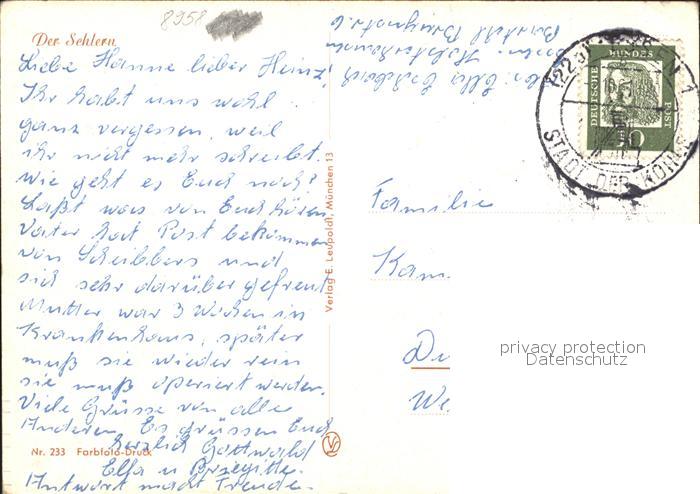 8958
Der Schlern
Liebe Hanne lieber Heinz!
Ihr habt uns wohl
ganz vergessen, weil
ihr nicht mehr schreibt.
Wie geht es Euch noch?
Laßt was von Euch hören
Vater hat Post bekommen
von Scheibbers und
sich sehr darüber gefreut
Mutter war 3 Wochen in
Krankenhaus, später
muß sie wieder rein
sie muß operiert werden.
Viele Grüsse von alle
Anderen. Es grüssen Euch
herzlich Gottwald
Elfa u Brigitte.
Antwort macht Freude.
Nr. 233 Farbfoto-Druck
Verlag E. Leupoldt, München 13
DEUTSCHE
BUNDES
POST
10
STADT DER
Familie
Kam
De
We
privacy protection
Datenschutz